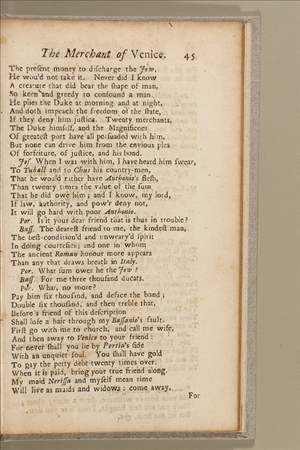 The Merchant of Venice. 45
The preſent money to diſcharge the Jew,
He wou'd not take it. Never did I know
A creature that did bear the ſhape of man,
So keen and greedy to confound a man.
He plies the Duke at morning and at night,
And doth impeach the freedom of the ſtate,
If they deny him juſtice. Twenty merchants,
The Duke himſelf, and the Magnificoes
Of greateſt port have all perſuaded with him,
But none can drive him from the envious plea
Of forfeiture, of juſtice, and his bond.
Jeſ. When I was with him, I have heard him ſwear,
To Tuball and to Chus his country-men,
That he would rather have Anthonio's fleſh,
Than twenty times the value of the ſum
That he did owe him; and I know, my lord,
If law, authority, and pow'r deny not,
It will go hard with poor Anthonio.
Por. Is it your dear friend that is thus in trouble?
Baſſ. The deareſt friend to me, the kindeſt man,
The beſt-condition'd and unweary'd ſpirit
In doing courteſies; and one in whom
The ancient Roman honour more appears
Than any that draws breath in Italy.
Por. What ſum owes he the Jew?
Baſſ. For me three thouſand ducats.
Por. What, no more?
Pay him ſix thouſand, and deface the bond;
Double ſix thouſand, and then treble that,
Before a friend of this deſcription
Shall loſe a hair through my Baſſanio's fault.
Firſt go with me to church, and call me wife,
And then away to Venice to your friend:
For never ſhall you lie by Portia's ſide
With an unquiet ſoul. You ſhall have gold
To pay the petty debt twenty times over.
When it is paid, bring your true friend along.
My maid Neriſſa and myſelf mean time
Will live as maids and widows: come, away,
For